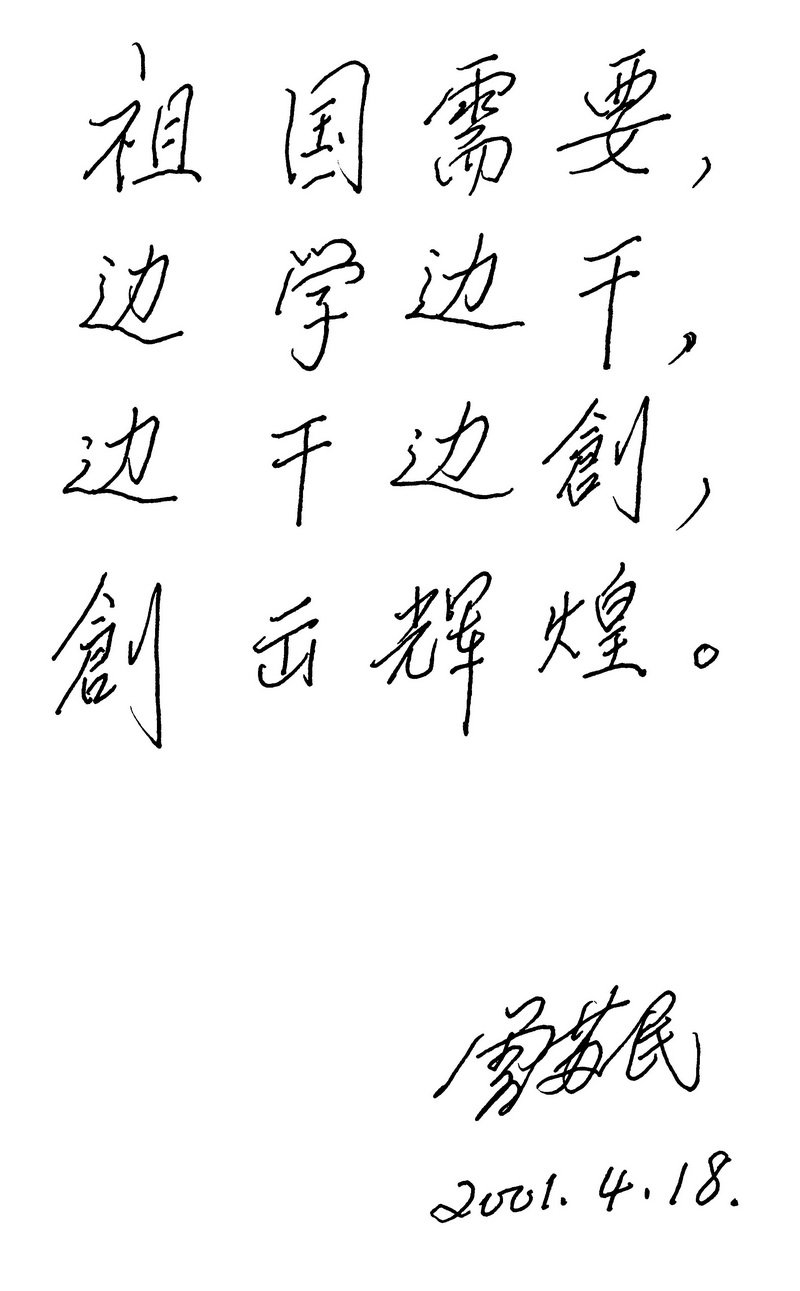 祖国需要，
边学边干，
边干边創，
創出辉煌。
曾苏民
2001.4.18.